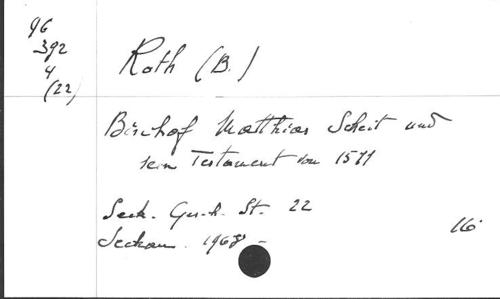 96
392
4
(22)
Roth (B.)
Bischof Matthias Scheit und
sein Testament von 1511
Seck. Gesch. St. 22
Seckau. 1968 -
16°